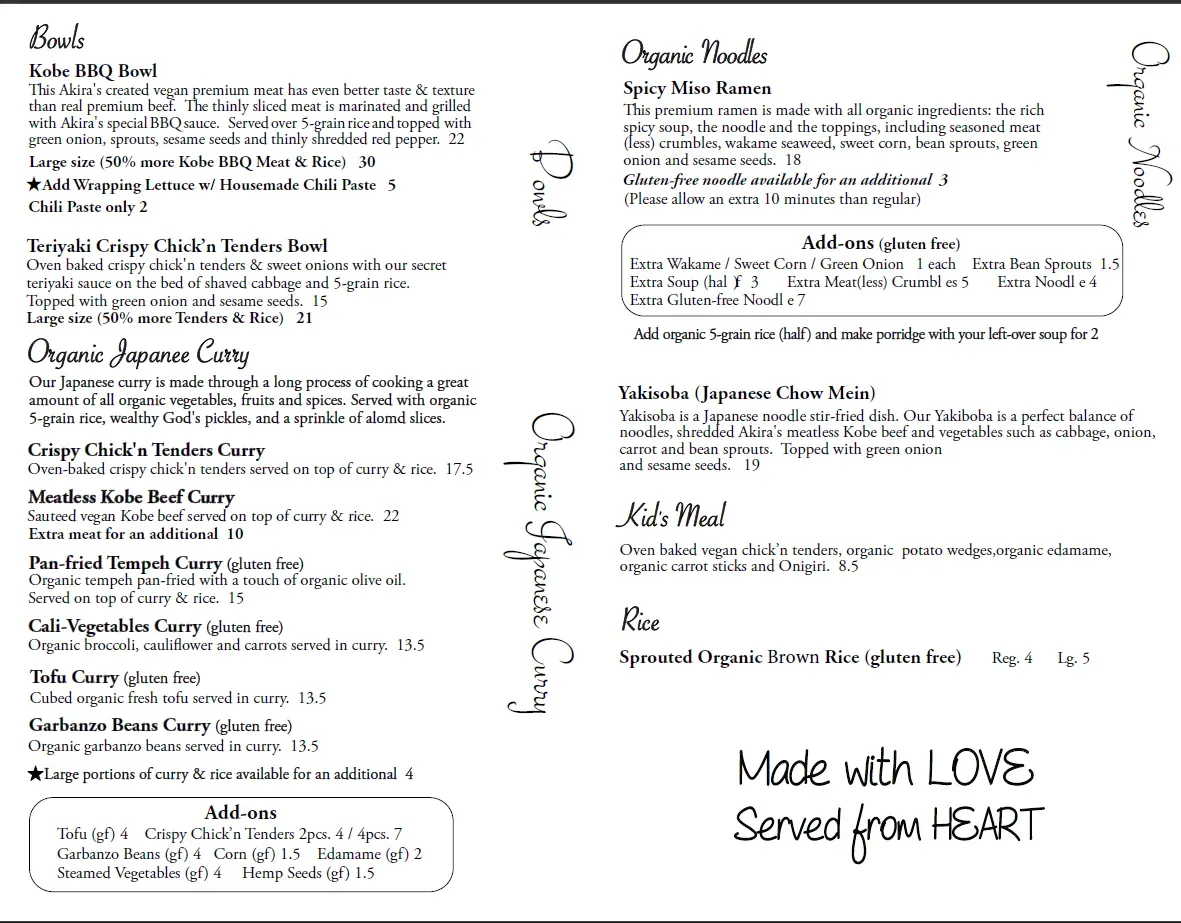 Bowls
Kobe BBQ Bowl
This Akira's created vegan premium meat has even better taste & texture
than real premium beef. The thinly sliced meat is marinated and grilled
with Akira's special BBQ sauce. Served over 5-grain rice and topped with
green onion, sprouts, sesame seeds and thinly shredded red pepper. 22
Large size (50% more Kobe BBQ Meat & Rice) 30
★Add Wrapping Lettuce w/ Housemade Chili Paste 5
Chili Paste only 2
Teriyaki Crispy Chick’n Tenders Bowl
Oven baked crispy chick'n tenders & sweet onions with our secret
teriyaki sauce on the bed of shaved cabbage and 5-grain rice.
Topped with green onion and sesame seeds. 15
Large size (50% more Tenders & Rice) 21
Bowls
Organic Japanee Curry
Our Japanese curry is made through a long process of cooking a great
amount of all organic vegetables, fruits and spices. Served with organic
5-grain rice, wealthy God's pickles, and a sprinkle of alomd slices.
Crispy Chick'n Tenders Curry
Oven-baked crispy chick'n tenders served on top of curry & rice. 17.5
Meatless Kobe Beef Curry
Sauteed vegan Kobe beef served on top of curry & rice. 22
Extra meat for an additional 10
Pan-fried Tempeh Curry (gluten free)
Organic tempeh pan-fried with a touch of organic olive oil.
Served on top of curry & rice. 15
Cali-Vegetables Curry (gluten free)
Organic broccoli, cauliflower and carrots served in curry. 13.5
Tofu Curry (gluten free)
Cubed organic fresh tofu served in curry. 13.5
Garbanzo Beans Curry (gluten free)
Organic garbanzo beans served in curry. 13.5
★Large portions of curry & rice available for an additional 4
Add-ons
Tofu (gf) 4 Crispy Chick’n Tenders 2pcs. 4 / 4pcs. 7
Garbanzo Beans (gf) 4 Corn (gf) 1.5 Edamame (gf) 2
Steamed Vegetables (gf) 4 Hemp Seeds (gf) 1.5
Organic Japanese Curry
Organic Noodles
Spicy Miso Ramen
This premium ramen is made with all organic ingredients: the rich
spicy soup, the noodle and the toppings, including seasoned meat
(less) crumbles, wakame seaweed, sweet corn, bean sprouts, green
onion and sesame seeds. 18
Gluten-free noodle available for an additional 3
(Please allow an extra 10 minutes than regular)
Add-ons (gluten free)
Extra Wakame / Sweet Corn / Green Onion 1 each Extra Bean Sprouts 1.5
Extra Soup (hal f) 3 Extra Meat(less) Crumbl es 5 Extra Noodl e 4
Extra Gluten-free Noodl e 7
Add organic 5-grain rice (half) and make porridge with your left-over soup for 2
Organic Noodles
Yakisoba (Japanese Chow Mein)
Yakisoba is a Japanese noodle stir-fried dish. Our Yakiboba is a perfect balance of
noodles, shredded Akira's meatless Kobe beef and vegetables such as cabbage, onion,
carrot and bean sprouts. Topped with green onion
and sesame seeds. 19
Kid's Meal
Oven baked vegan chick’n tenders, organic potato wedges,organic edamame,
organic carrot sticks and Onigiri. 8.5
Rice
Sprouted Organic Brown Rice (gluten free) Reg. 4 Lg. 5
Made with LOVE
Served from HEART